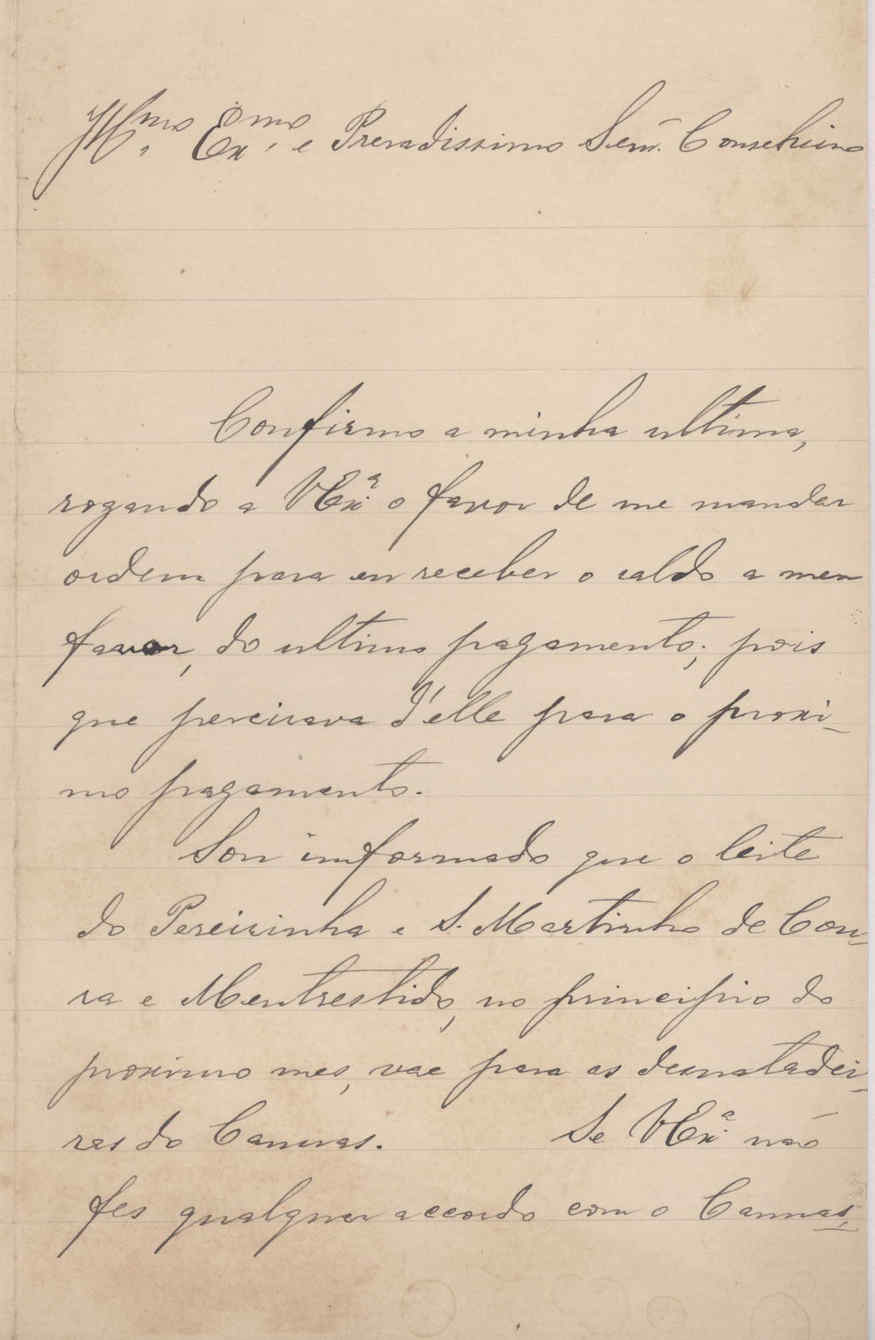 Ill.mo Ex.mo, e Presadissimo Senr. Conselheiro
Confirmo a minha ultima,
rogando a VEx.ª o favor de me mandar
ordem para eu receber o saldo a meu
favor, do ultimo pagamento; pois
que percisava d'elle para o proxi-
mo pagamento.
Sou imformado que o leite
do Pereirinha e S. Martinho de Cou-
ra e Mentrestido, no principio do
proximo mes, vae para as desnatadei-
ras do Cannas. Se VEx.ª não
fes qualquer accordo com o Cannas,